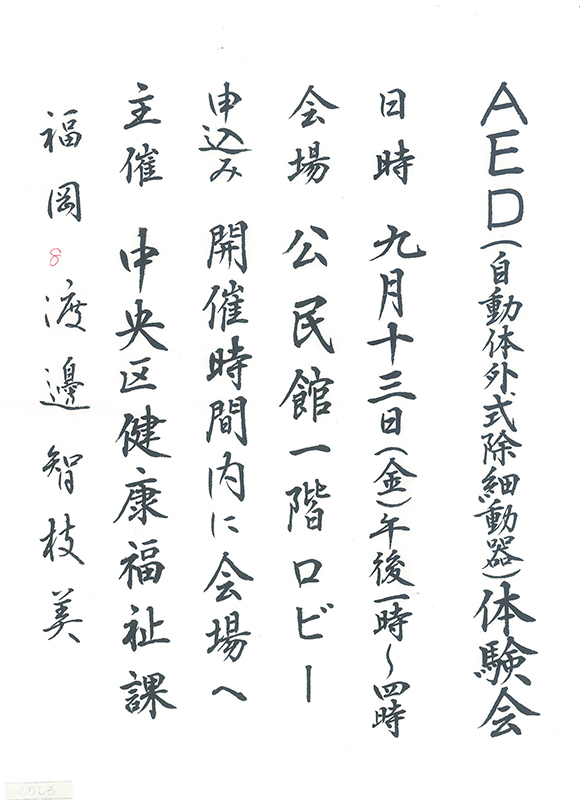 AED(自動体外式除細動器)体験会
日時 九月十三日(金)午後一時～四時
会場 公民館一階ロビー
申込み 開催時間内に会場へ
主催 中央区健康福祉課
福岡 8 渡邊智枝美
のりしろ